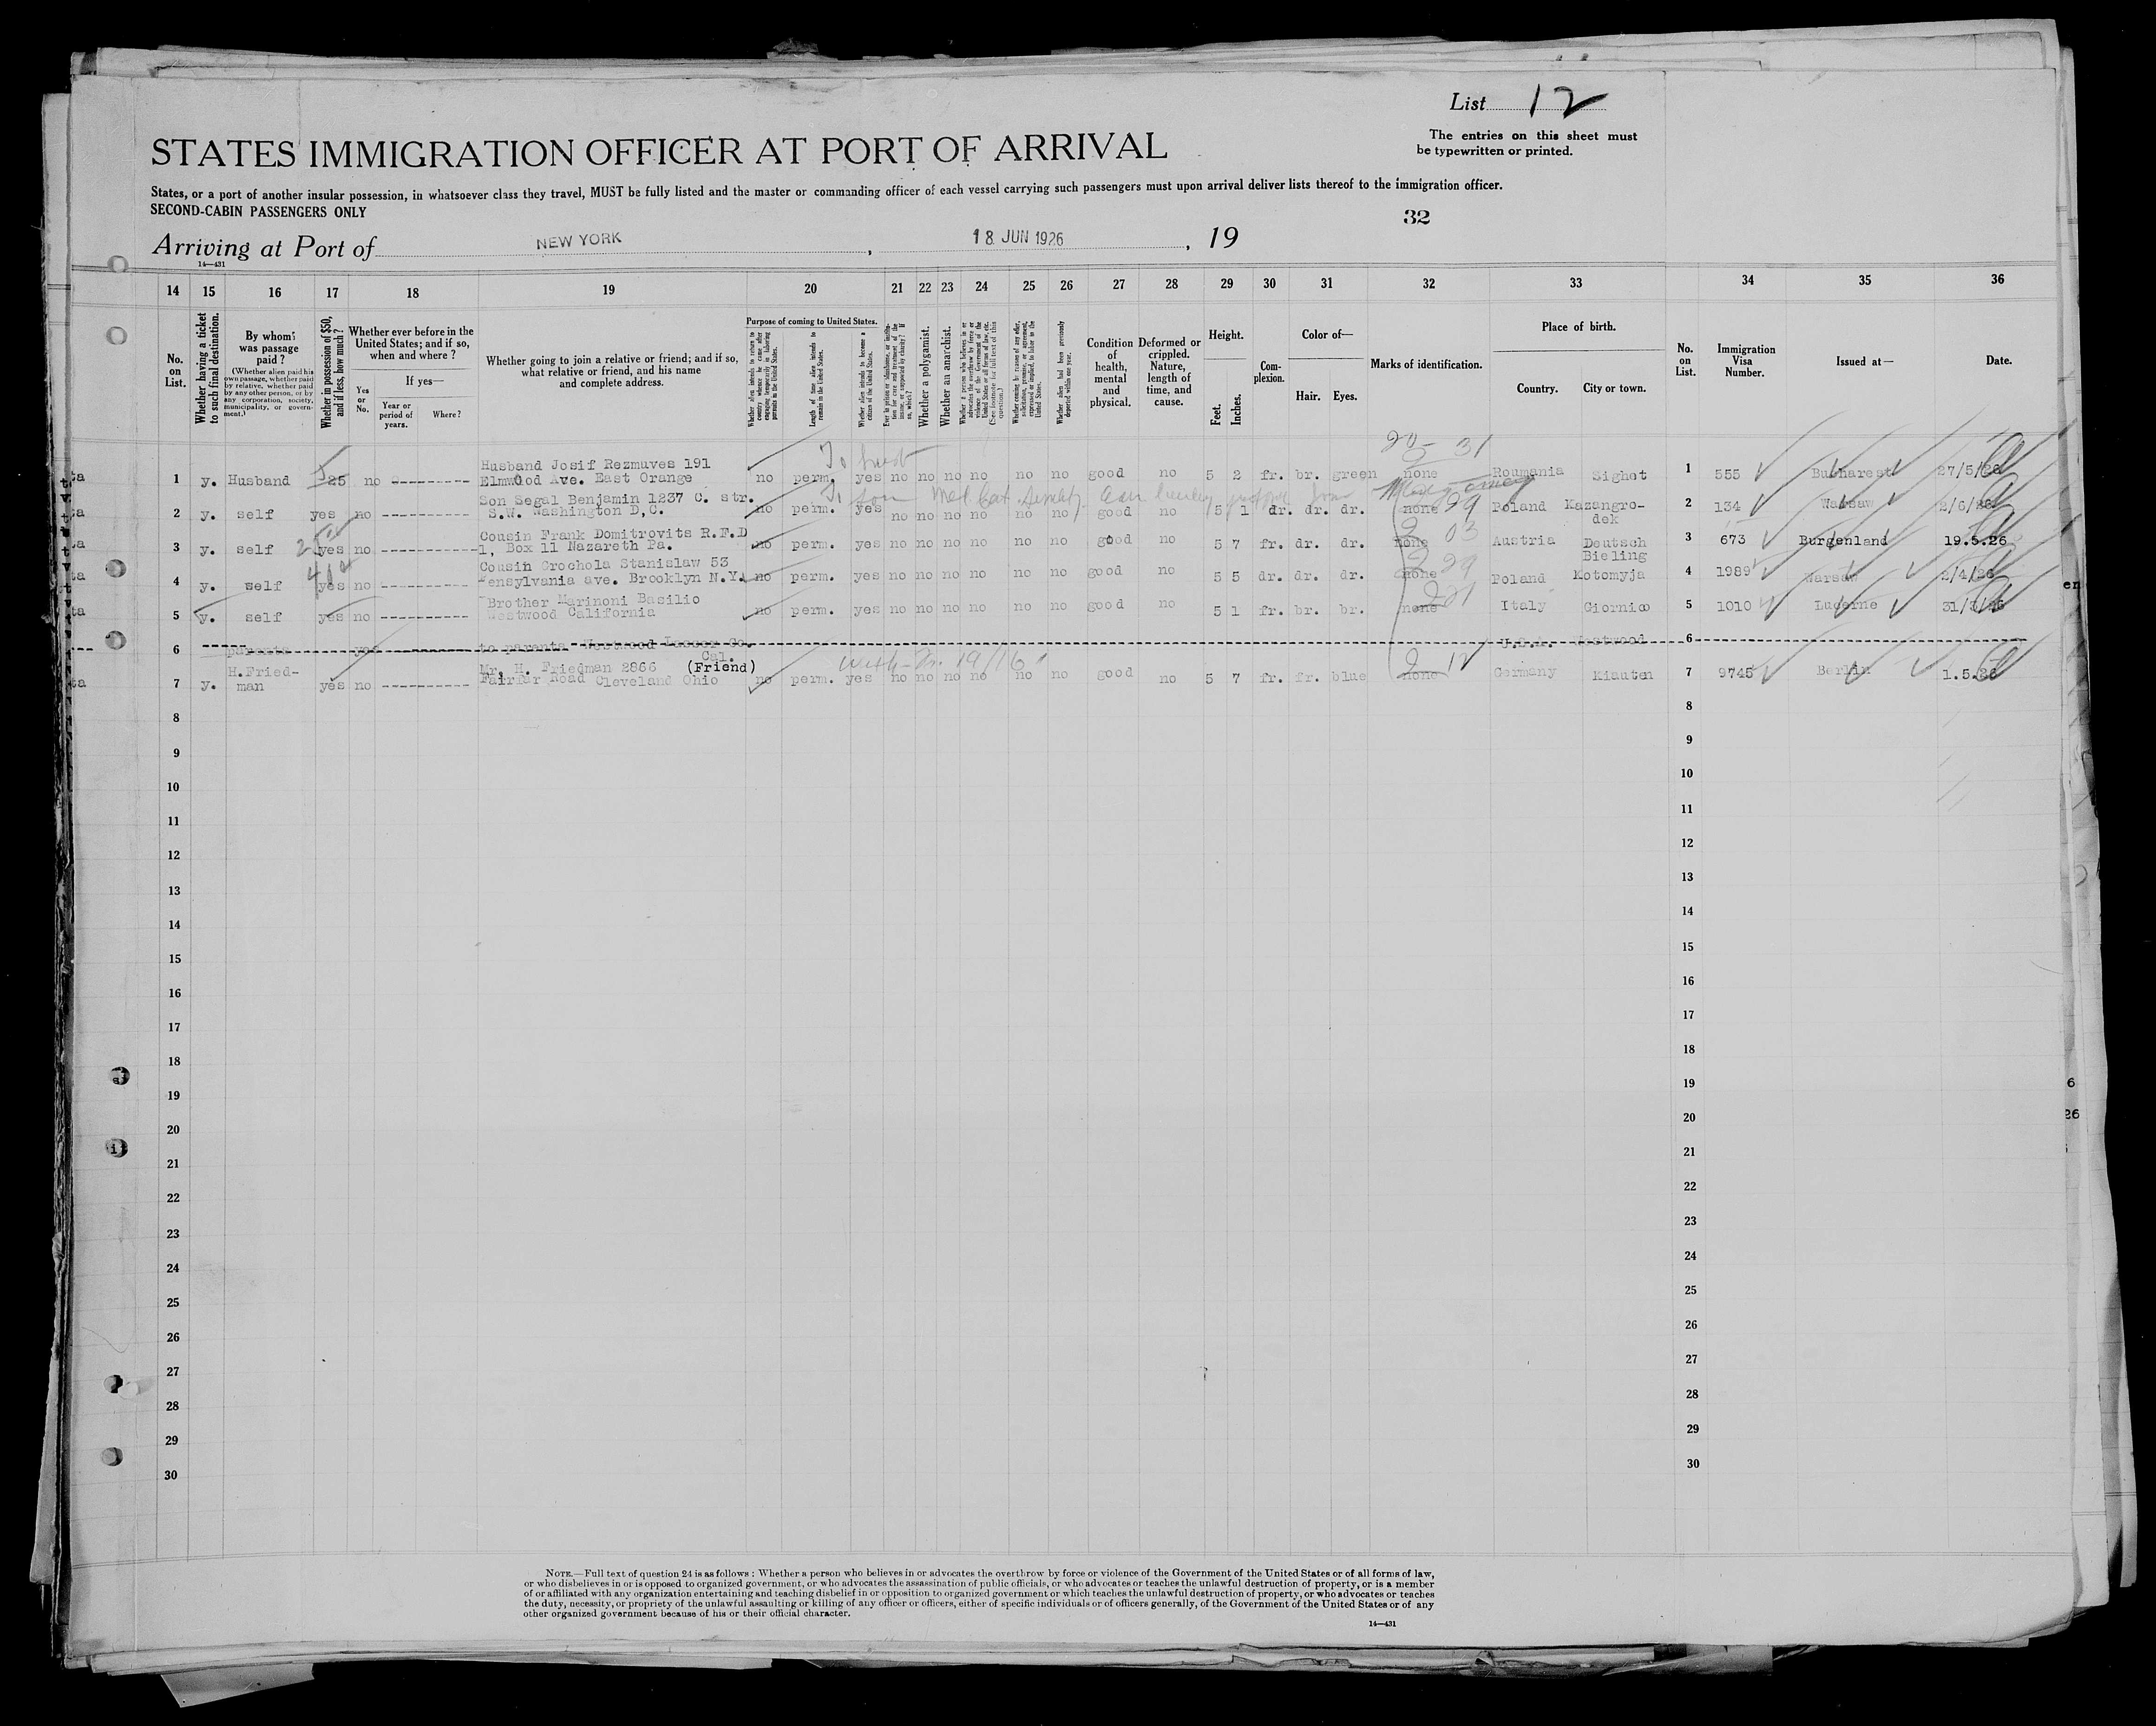 List 12
The entries on this sheet must
be typewritten or printed.
STATES IMMIGRATION OFFICER AT PORT OF ARRIVAL
States, or a port of another insular possession, in whatsoever class they travel, MUST be fully listed and the master or commanding officer of each vessel carrying such passengers must upon arrival deliver lists thereof to the immigration officer.
SECOND-CABIN PASSENGERS ONLY
32
Arriving at Port of NEW YORK, 18 JUN 1926, 19
14—431
14 15 16 17 18 19 20 21 22 23 24 25 26 27 28 29 30 31 32 33 34 35 36
No. on List.
Whether having a ticket to such final destination.
By whom was passage paid?
(Whether alien paid his own passage, whether paid by relative, whether paid by any other person, or by any corporation, society, municipality, or government.)
Whether in possession of $50, and if less, how much?
Whether ever before in the United States; and if so, when and where?
Yes or No.
If yes—
Year or period of years.
Where?
Whether going to join a relative or friend; and if so, what relative or friend, and his name and complete address.
Purpose of coming to United States.
Whether alien intends to return to country whence he came after engaging temporarily in laboring pursuits in the United States.
Length of time alien intends to remain in the United States.
Whether alien intends to become a citizen of the United States.
Whether a polygamist.
Whether an anarchist.
Whether alien had been previously deported within one year.
Condition of health, mental and physical.
Deformed or crippled. Nature, length of time, and cause.
Height.
Feet. Inches.
Complexion.
Color of—
Hair. Eyes.
Marks of identification.
Place of birth.
Country. City or town.
No. on List.
Immigration Visa Number.
Issued at—
Date.
20- 31
To husb
Husband Josif Rezmuves 191
1 y. Husband 25 no Elmwood Ave. East Orange no perm. yes no no no no no no good no 5 2 fr. br. green none Roumania Sighet 1 555 Bucharest 27/5/26
To son
Son Segal Benjamin 1237 C. str.
2 y. self yes no S.W. Washington D,C. no perm. yes no no no no no no good no 5 1 dr. dr. dr. none 99 Poland Kazangro-
dek 2 134 Warsaw 2/6/26
Cousin Frank Domitrovits R.F.D
3 y. self yes no 1, Box 11 Nazareth Pa. no perm. yes no no no no no no good no 5 7 fr. dr. dr. none 03 Austria Deutsch
Bieling 3 673 Burgenland 19.5.26
Cousin Crochola Stanislaw 53
4 y. self yes no Pensylvania ave. Brooklyn N.Y. no perm. yes no no no no no no good no 5 5 dr. dr. dr. none Poland Kotomyja 4 1989 Warsaw 2/4/26
Brother Marinoni Basilio
5 y. self yes no Westwood California no perm. yes no no no no no no good no 5 1 fr. br. br. none Italy Giornico 5 1010 Lucerne
6 parents yes to parents Westwood Cal. U.S.A. Westwood 6
H.Fried-
man
Mr. H. Friedman 2866 (Friend)
7 y. yes no Fairfar Road Cleveland Ohio no perm. yes no no no no no no good no 5 7 fr. fr. blue none Germany Kiauten 7 9745 Berlin 1.5.26
8 8
9 9
10 10
11 11
12 12
13 13
14 14
15 15
16 16
17 17
18 18
19 19
20 20
21 21
22 22
23 23
24 24
25 25
26 26
27 27
28 28
29 29
30 30
NOTE.—Full text of question 24 is as follows: Whether a person who believes in or advocates the overthrow by force or violence of the Government of the United States or of all forms of law,
or who disbelieves in or is opposed to organized government, or who advocates the assassination of public officials, or who advocates or teaches the unlawful destruction of property, or is a member
of or affiliated with any organization entertaining and teaching disbelief in or opposition to organized government or which teaches the unlawful destruction of property, or who advocates or teaches
the duty, necessity, or propriety of the unlawful assaulting or killing of any officer or officers, either of specific individuals or of officers generally, of the Government of the United States or of any
other organized government because of his or their official character.
14—431